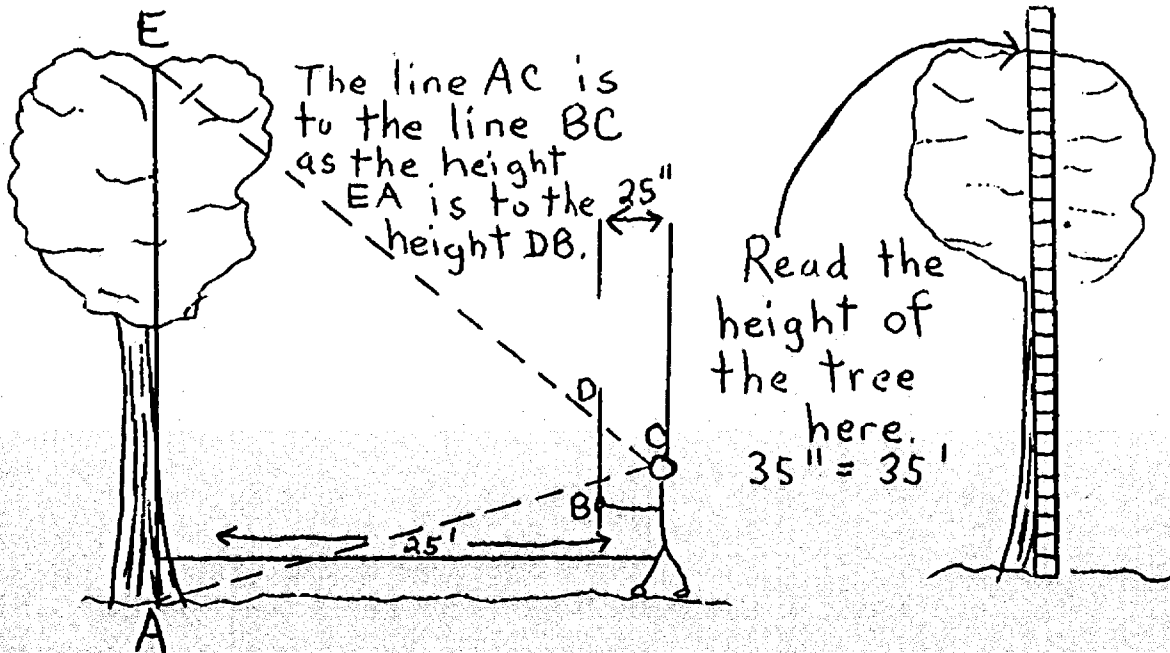 E
The line AC is
to the line BC
as the height
EA is to the
height DB.
25"
D
C
B
25'
A
Read the
height of
the tree
here.
35" = 35'